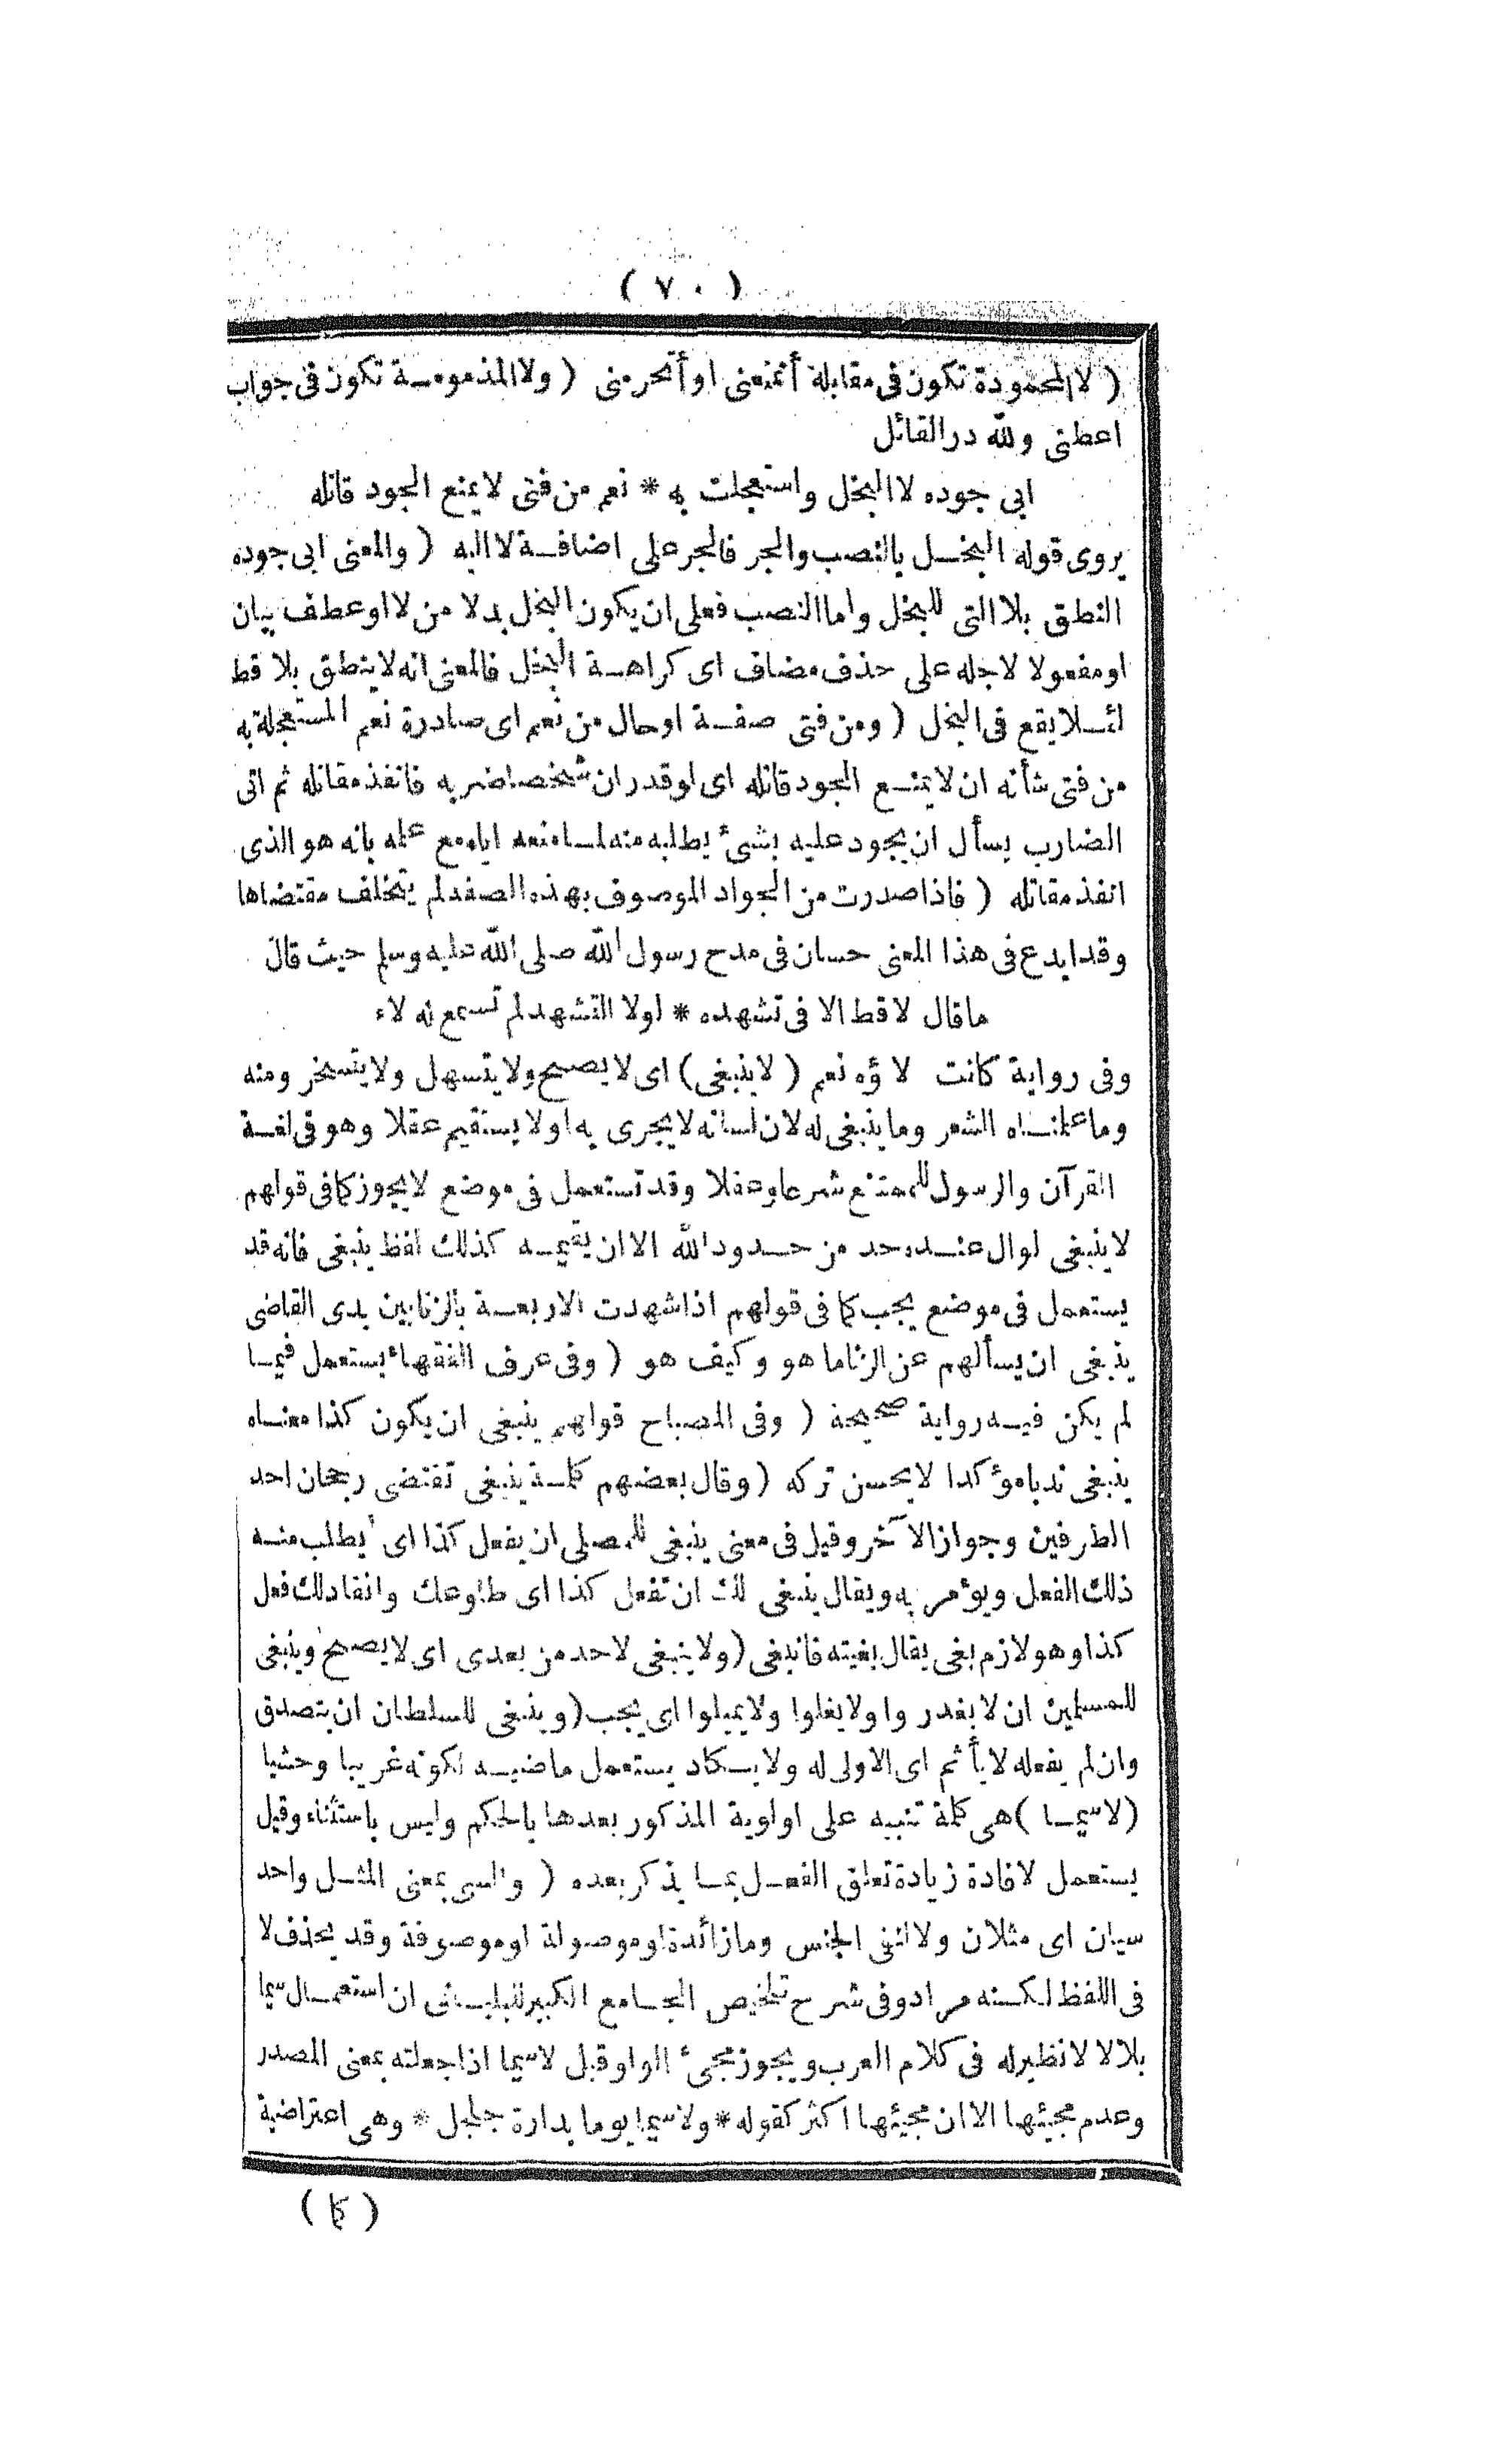 ( ٧٠ )
( لا المحمودة تكون فى مقابلة أتمنعنى او أتحرمنى ( ولا المذمومة تكون فى جواب
اعطنى ولله در القائل
ابى جوده لا البخل واستعجلت به * نعم من فتى لا يمنع الجود قاتله
يروى قوله البخل بالنصب والجر فالجر على اضافة لا اليه ( والمعنى ابى جوده
النطق بلا التى للبخل واما النصب فعلى ان يكون البخل بدلا من لا او عطف بيان
او مفعولا لاجله على حذف مضاف اى كراهة البخل فالمعنى انه لا ينطق بلا قط
لئلا يقع فى البخل ( ومن فتى صفة او حال من نعم اى صادرة نعم المستعجلة به
من فتى شأنه ان لا يمنع الجود قاتله اى لو قدر ان شخصا ضربه فانفذ مقاتله ثم اتى
الضارب يسأل ان يجود عليه بشئ يطلبه منه لما منعه اياه مع علمه بانه هو الذى
انفذ مقاتله ( فاذا صدرت من الجواد الموصوف بهذه الصفة لم يتخلف مقتضاها
وقد ابدع فى هذا المعنى حسان فى مدح رسول الله صلى الله عليه وسلم حيث قال
ما قال لا قط الا فى تشهده * لولا التشهد لم تسمع له لاء
وفى رواية كانت لاؤه نعم ( لا ينبغى ) اى لا يصح ولا يتسهل ولا يتسخر ومنه
وما علمناه الشعر وما ينبغى له لان لسانه لا يجرى به او لا يستقيم عقلا وهو فى لغة
القرآن والرسول للممتنع شرعا وعقلا وقد تستعمل فى موضع لا يجوز كما فى قولهم
لا ينبغى لوال عنده حد من حدود الله الا ان يقيمه كذلك لفظ ينبغى فانه قد
يستعمل فى موضع يجب كما فى قولهم اذا شهدت الاربعة بالزنا بين يدى القاضى
ينبغى ان يسألهم عن الزنا ما هو وكيف هو ( وفى عرف الفقهاء يستعمل فيما
لم يكن فيه رواية صحيحة ( وفى المصباح قولهم ينبغى ان يكون كذا معناه
ينبغى ندبا مؤكدا لا يحسن تركه ( وقال بعضهم كلمة ينبغى تقتضى رجحان احد
الطرفين وجواز الآخر وقيل فى معنى ينبغى للمصلى ان يفعل كذا اى يطلب منه
ذلك الفعل ويؤمر به ويقال ينبغى لك ان تفعل كذا اى طاوعك وانقاد لك فعل
كذا وهو لازم بغى يقال بغيته فانبغى ( ولا ينبغى لاحد من بعدى اى لا يصح وينبغى
للمسلمين ان لا يغدروا ولا يغلوا ولا يميلوا اى يجب ( وينبغى للسلطان ان يتصدق
وان لم يفعله لا يأثم اى الاولى له ولا يكاد يستعمل ماضيه لكونه غريبا وحشيا
( لا سيما ) هى كلمة تنبيه على اولوية المذكور بعدها بالحكم وليس باستثناء وقيل
يستعمل لافادة زيادة تعلق الفعل بما يذكر بعده ( والسى بمعنى المثل واحد
سيان اى مثلان ولا لنفى الجنس وما زائدة او موصولة او موصوفة وقد يحذف لا
فى اللفظ لكنه مراد وفى شرح تلخيص الجامع الكبير للبلبانى ان استعمال سيما
بلا لا لا نظير له فى كلام العرب ويجوز مجئ الواو قبل لا سيما اذا جعلته بمعنى المصدر
وعدم مجيئها الا ان مجيئها اكثر كقوله * ولا سيما يوما بدارة جلجل * وهى اعتراضية
( كما )